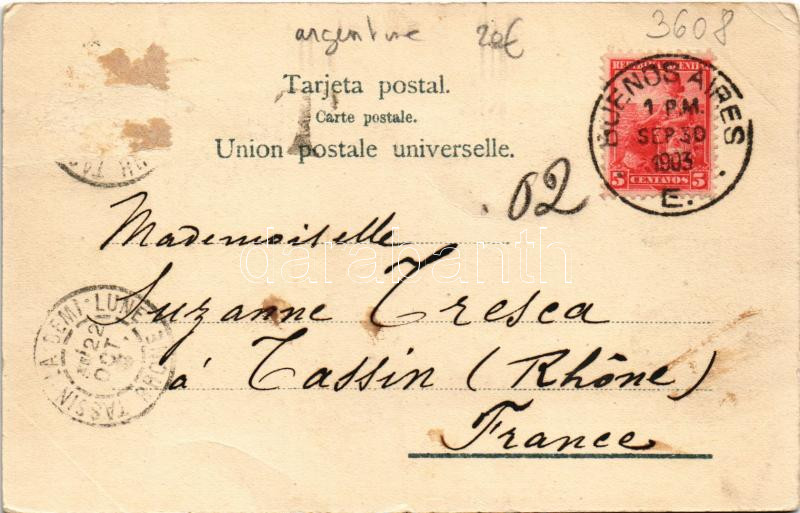 argentine 20€
3608
Tarjeta postal.
Carte postale.
Union postale universelle.
T
REPUBLICA ARGENTINA
5 CENTAVOS 5
BUENOS AIRES
1 P.M.
SEP 30
1903
E.
.02
Mademoiselle
Suzanne Tresca
à Tassin (Rhône)
France
TASSIN LA DEMI-LUNE
22
OCT
RHONE
darabanth